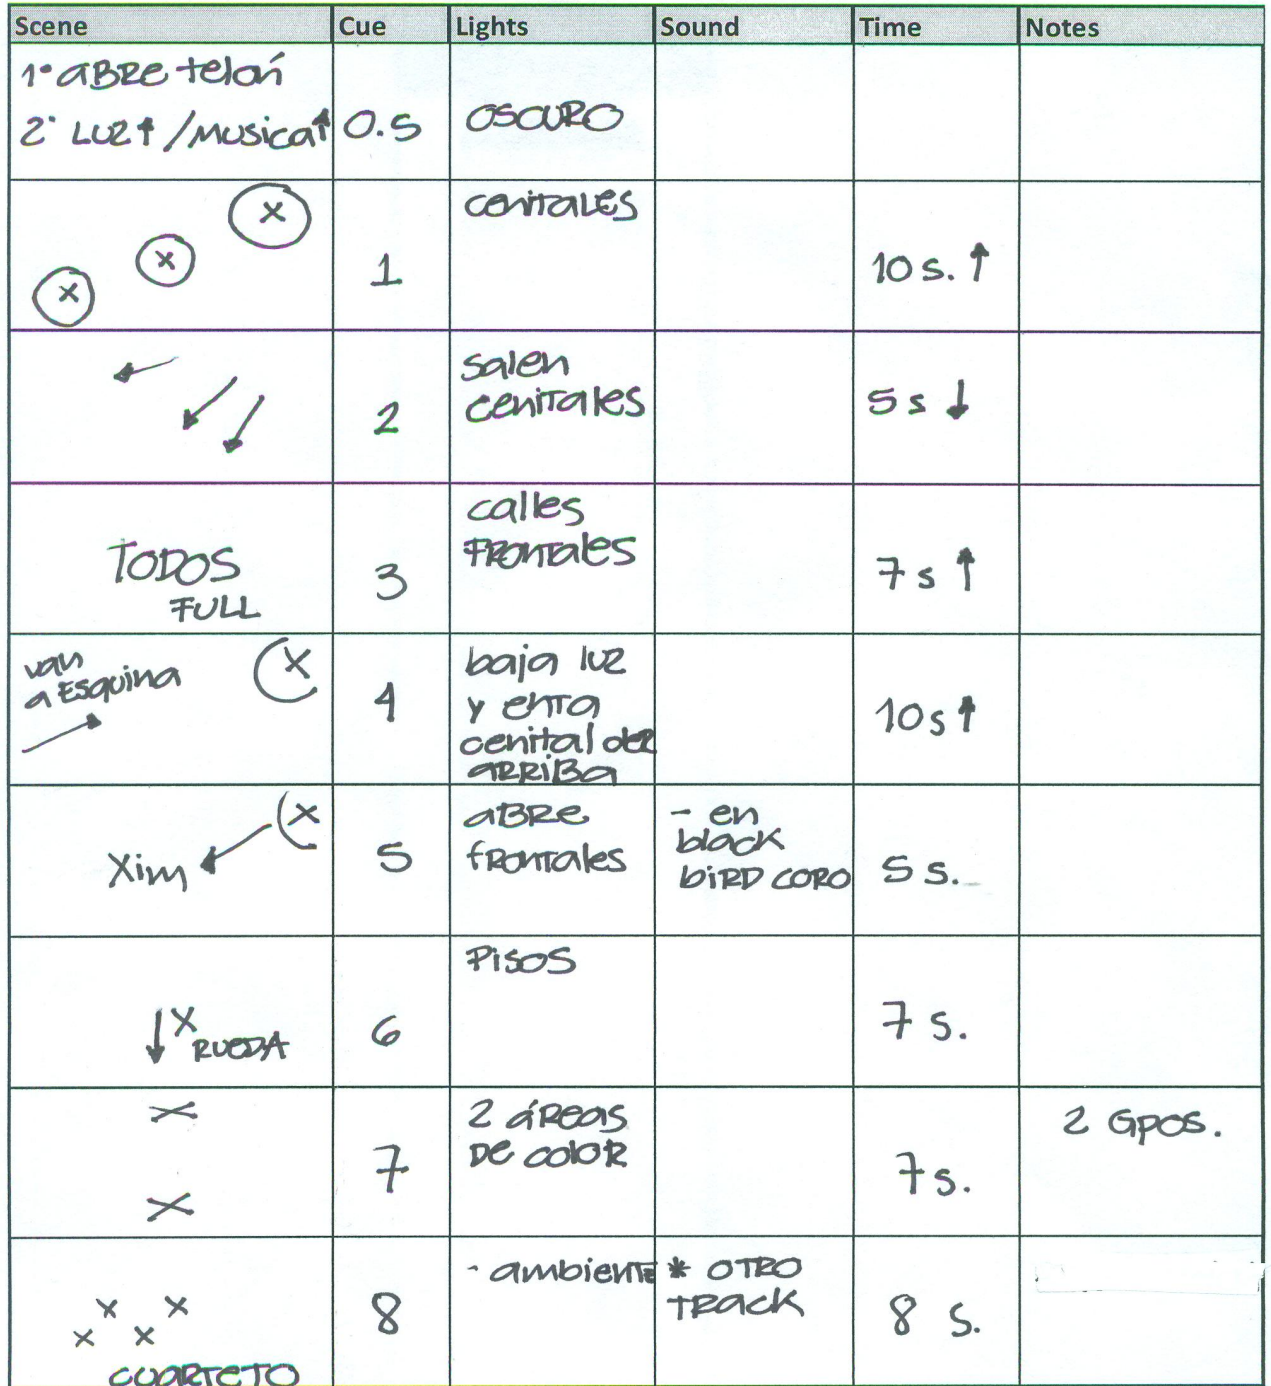 Scene Cue Lights Sound Time Notes
1º aBRe telón
2º LUZ↑ /Musica↑ 0.5 OSCURO
cenitales
x x x 1 10 s. ↑
salen
cenitales
2 5 s ↓
calles
frontales
TODOS
FULL 3 7 s ↑
van
a Esquina x
4
baja luz
y entra
cenital der
ARRiBa
10 s ↑
Xim x
5
aBRe
frontales
- en
black
biRD CORO
5 s.
Pisos
x
RUEDA 6 7 s.
x
x
7
2 áReas
De coloR
7 s.
2 Gpos.
x x
x x
CUaRTeTO
8
- ambiente
* OTRO
TRack
8 s.